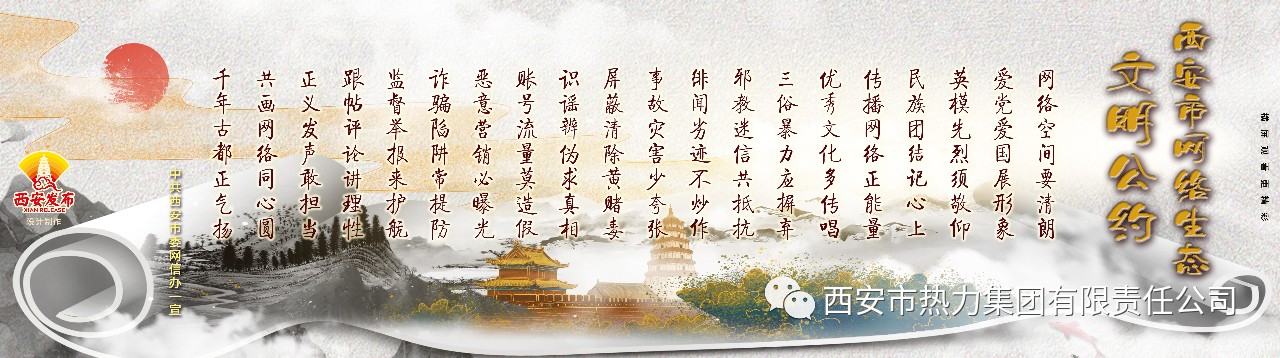 西安市网络生态
文明公约
网络空间要清朗
爱党爱国展形象
英模先烈须敬仰
民族团结记心上
传播网络正能量
优秀文化多传唱
三俗暴力应摒弃
邪教迷信共抵抗
绯闻劣迹不炒作
事故灾害少夸张
屏蔽清除黄赌毒
识谣辨伪求真相
账号流量莫造假
恶意营销必曝光
诈骗陷阱常提防
监督举报来护航
跟帖评论讲理性
正义发声敢担当
共画网络同心圆
千年古都正气扬
中共西安市委网信办 宣
西安发布
XIAN RELEASE
设计制作
西安市热力集团有限责任公司